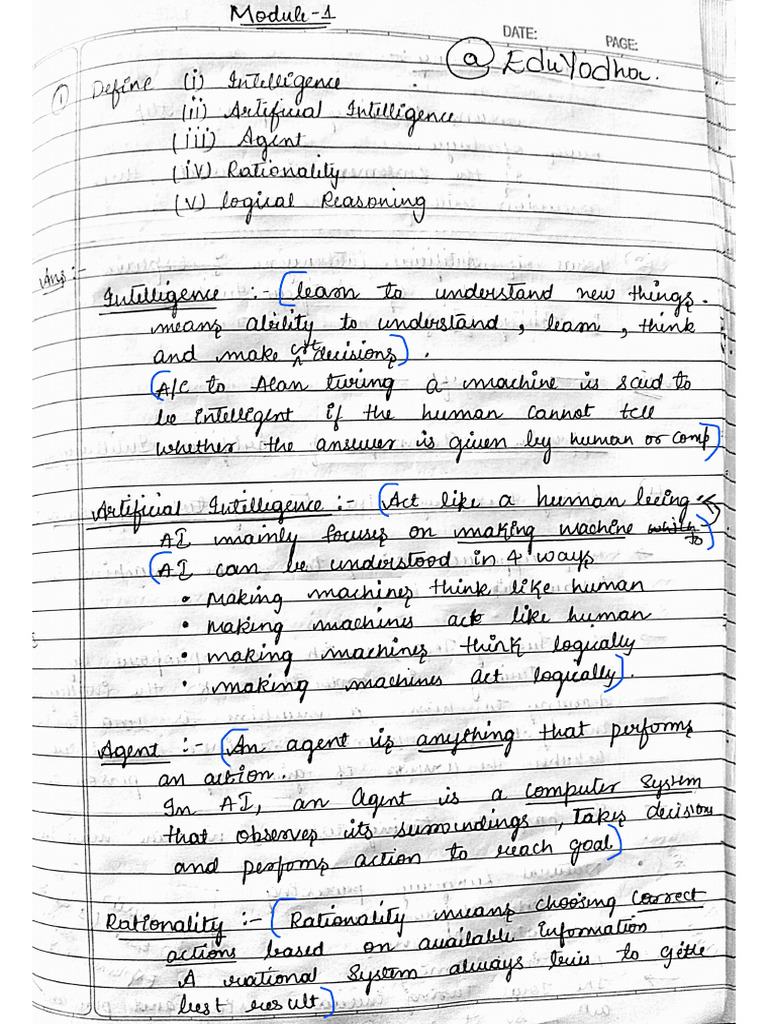 Module-1
DATE: PAGE:
@ EduYodha.
① Define (i) Intelligence
(ii) Artificial Intelligence
(iii) Agent
(iv) Rationality
(v) logical Reasoning
Ans :-
Intelligence :- (learn to understand new things.
means ability to understand, learn, think
and make decisions).
(A/c to Alan turing a machine is said to
be intelligent if the human cannot tell
whether the answer is given by human or comp)
Artificial Intelligence :- (Act like a human being
AI mainly focuses on making machine which to).
(AI can be understood in 4 ways
• Making machines think like human
• Making machines act like human
• making machines think logically
• making machines act logically).
Agent :- (An agent is anything that performs
an action.
In AI, an Agent is a computer system
that observes its surroundings, takes decision
and performs action to reach goal)
Rationality :- (Rationality means choosing correct
actions based on available information
A rational system always to get
best result)